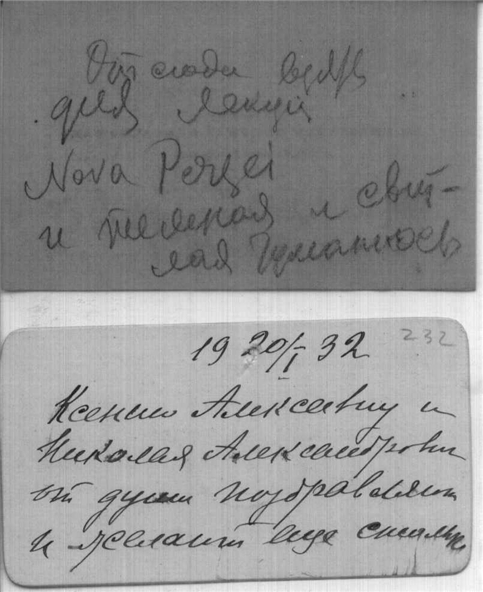 Отсюда взять
для лекции
Nova Persei
и темная и свет-
лая туманность
19 20/I 32
232
Ксению Алексеевну и
Николая Александрови
от души поздравляют
и желают еще столько